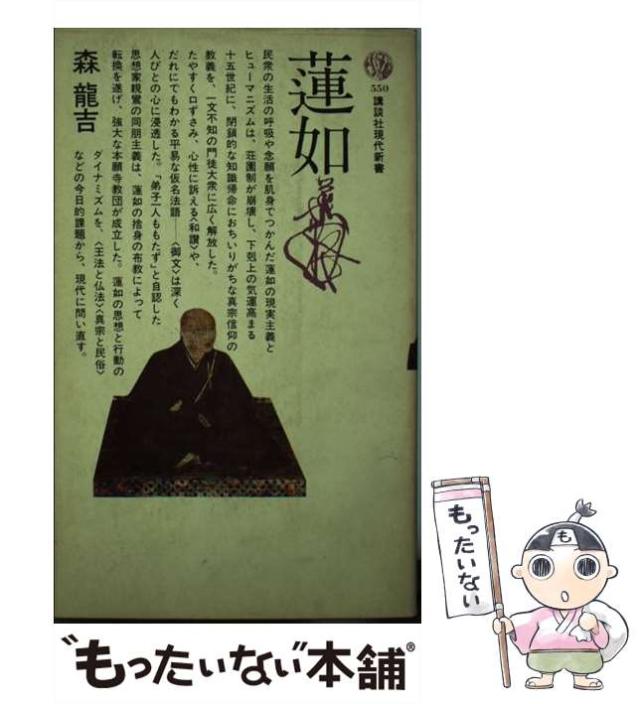 550
講談社現代新書
蓮如
民衆の生活の呼吸や念願を肌身でつかんだ蓮如の現実主義と
ヒューマニズムは、荘園制が崩壊し、下剋上の気運高まる
十五世紀に、閉鎖的な知識帰命におちいりがちな真宗信仰の
教義を、一文不知の門徒大衆に広く解放した。
たやすく口ずさみ、心性に訴える〈和讃〉や、
だれにでもわかる平易な仮名法語――〈御文〉は深く
人びとの心に浸透した。「弟子一人ももたず」と自認した
思想家親鸞の同朋主義は、蓮如の捨身の布教によって
転換を遂げ、強大な本願寺教団が成立した。蓮如の思想と行動の
ダイナミズムを、〈王法と仏法〉〈真宗と民俗〉
などの今日的課題から、現代に問い直す。
森 龍吉
もったいない
も
“もったいない”本舗®